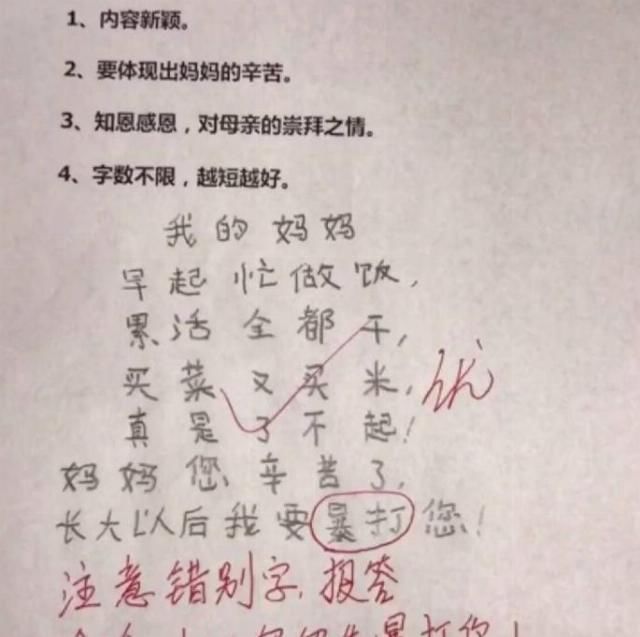 1、内容新颖。
2、要体现出妈妈的辛苦。
3、知恩感恩，对母亲的崇拜之情。
4、字数不限，越短越好。
我的妈妈
早起忙做饭，
累活全都干，
买菜又买米，
优
真是了不起！
妈妈您辛苦了，
长大以后我要暴打您！
注意错别字，报答
暴打你！